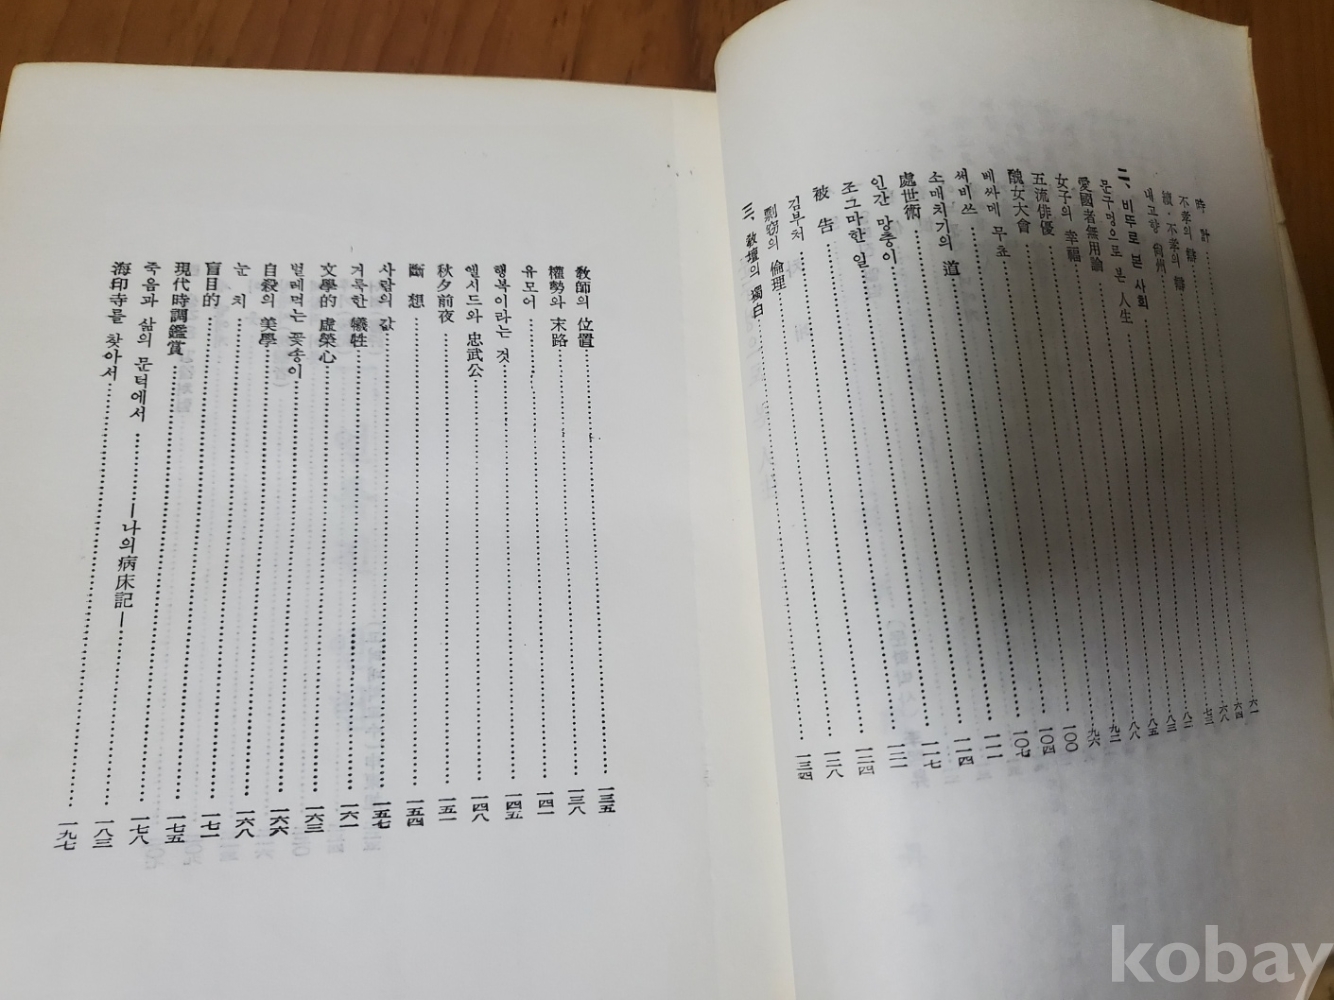 時計 六一
不孝의 辯 六四
續·不孝의 辯 六八
내고향 尙州 七三
二、비뚜로 본 사회 八二
문구멍으로 본 人生 八三
愛國者無用論 八五
女子의 幸福 八八
五流俳優 九二
醜女大會 九六
베싸메 무쵸 一〇〇
써비쓰 一〇四
소매치기의 道 一〇七
處世術 一一一
인간 망충이 一一四
조그마한 일 一一七
被告 一二一
김부처 一二四
剽窃의 倫理 一二八
三、敎壇의 獨白 一三四
敎師의 位置 一三五
權勢와 末路 一三八
유모어 一四一
행복이라는 것 一四五
엘시드와 忠武公 一四八
秋夕前夜 一五一
斷想 一五四
사람의 값 一五七
거룩한 犧牲 一六一
文學的 虛榮心 一六三
벌레먹는 꽃송이 一六六
自殺의 美學 一六八
눈치 一七一
盲目的 一七五
現代時調鑑賞 一七八
죽음과 삶의 문턱에서 —나의病床記— 一八三
海印寺를 찾아서 一九七
kobay